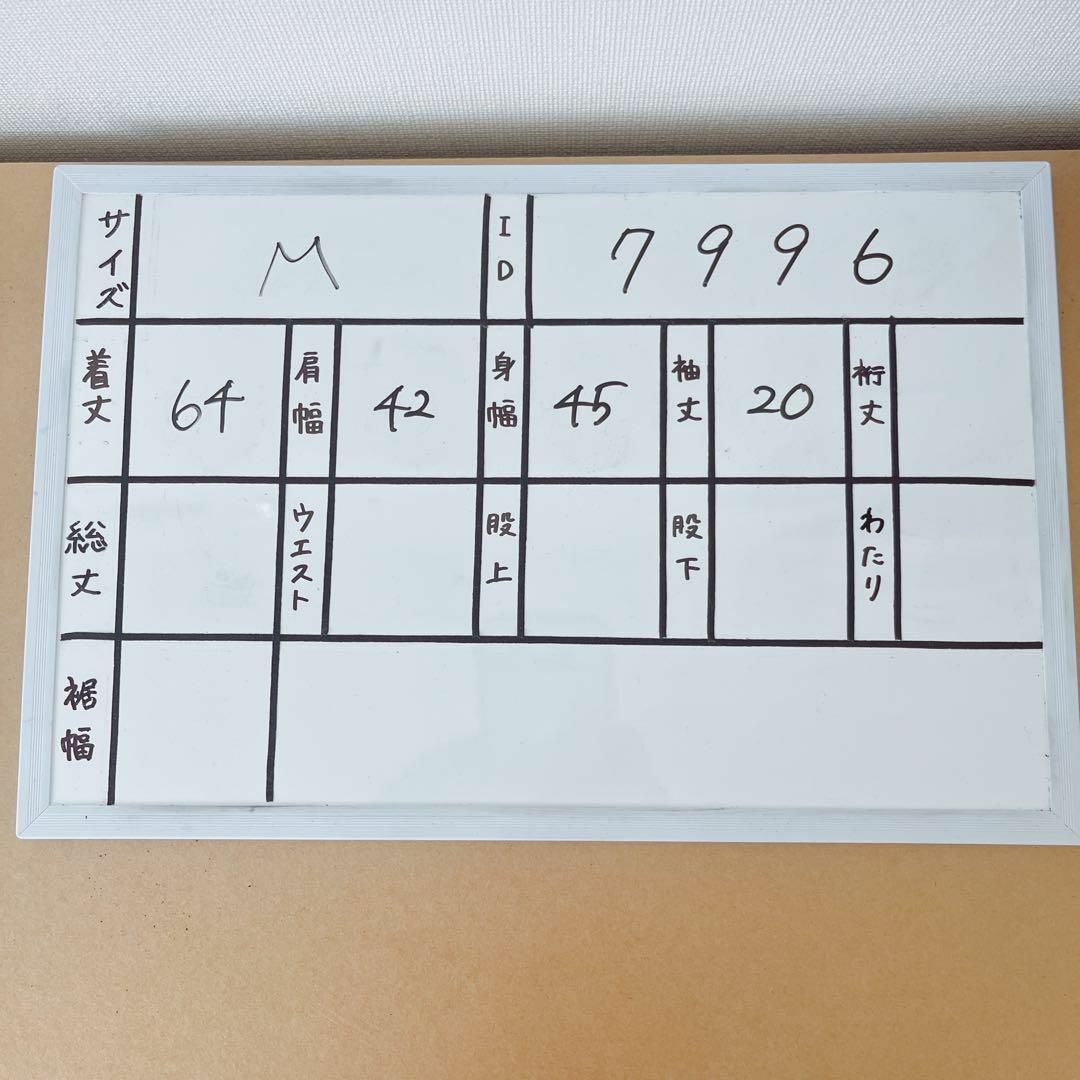 サイズ M ID 7996
着丈 64 肩幅 42 身幅 45 袖丈 20 裄丈
総丈 ウエスト 股上 股下 わたり
裾幅